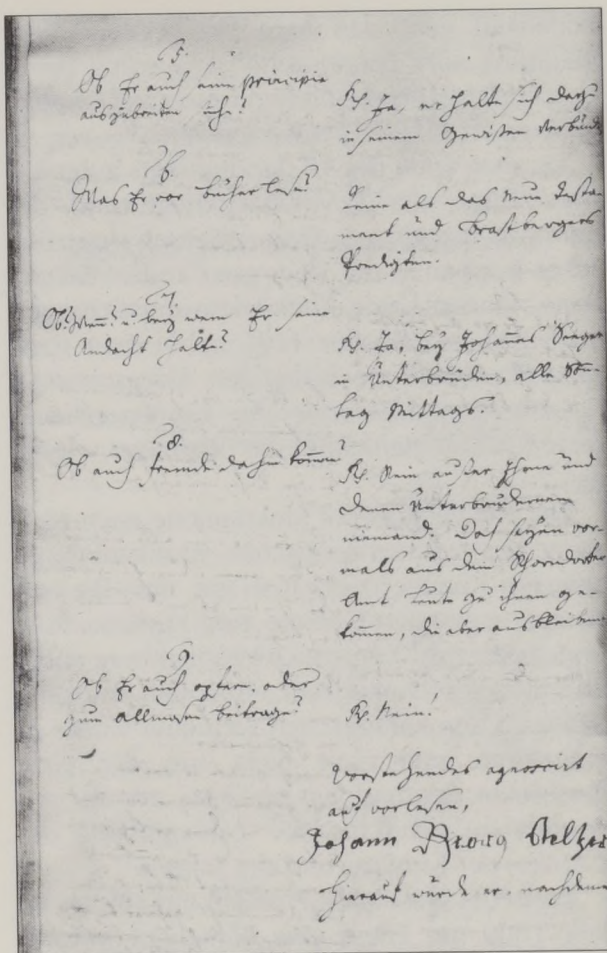 5.
Ob Er auch seine principia
auszubreiten suche?
Rp. Ja, er halte sich dazu
in seinem Gewissen verbund
6.
Was Er vor bücher lese?
Keine als das Neue Testa-
ment und Brastbergers
Predigten.
7.
Ob? Wann? u. bey wem Er seine
Andacht halte?
Rp. Ja, bey Johannes Seeger
in Unterbrüden, alle Son-
tag Mittags.
8.
Ob auch fremde dahin kommen?
Rp. Nein außer ihnen und
denen Unterbrudenern
niemand. Doch seyen vor-
mals aus dem Schorndorfer
Amt Leute zu ihnen ge-
kommen, die aber ausbleiben
9.
Ob Er auch opfere oder
zum Allmosen beitrage?
Rp. Nein!
Vorstehendes agnoscirt
auf vorlesen,
Johann Georg
Hierauf wurde er, nachdeme